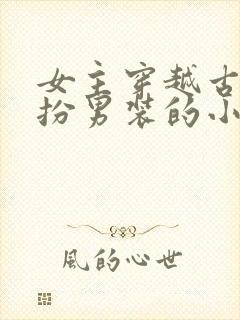 女主穿越古
扮男装的小
風的心世